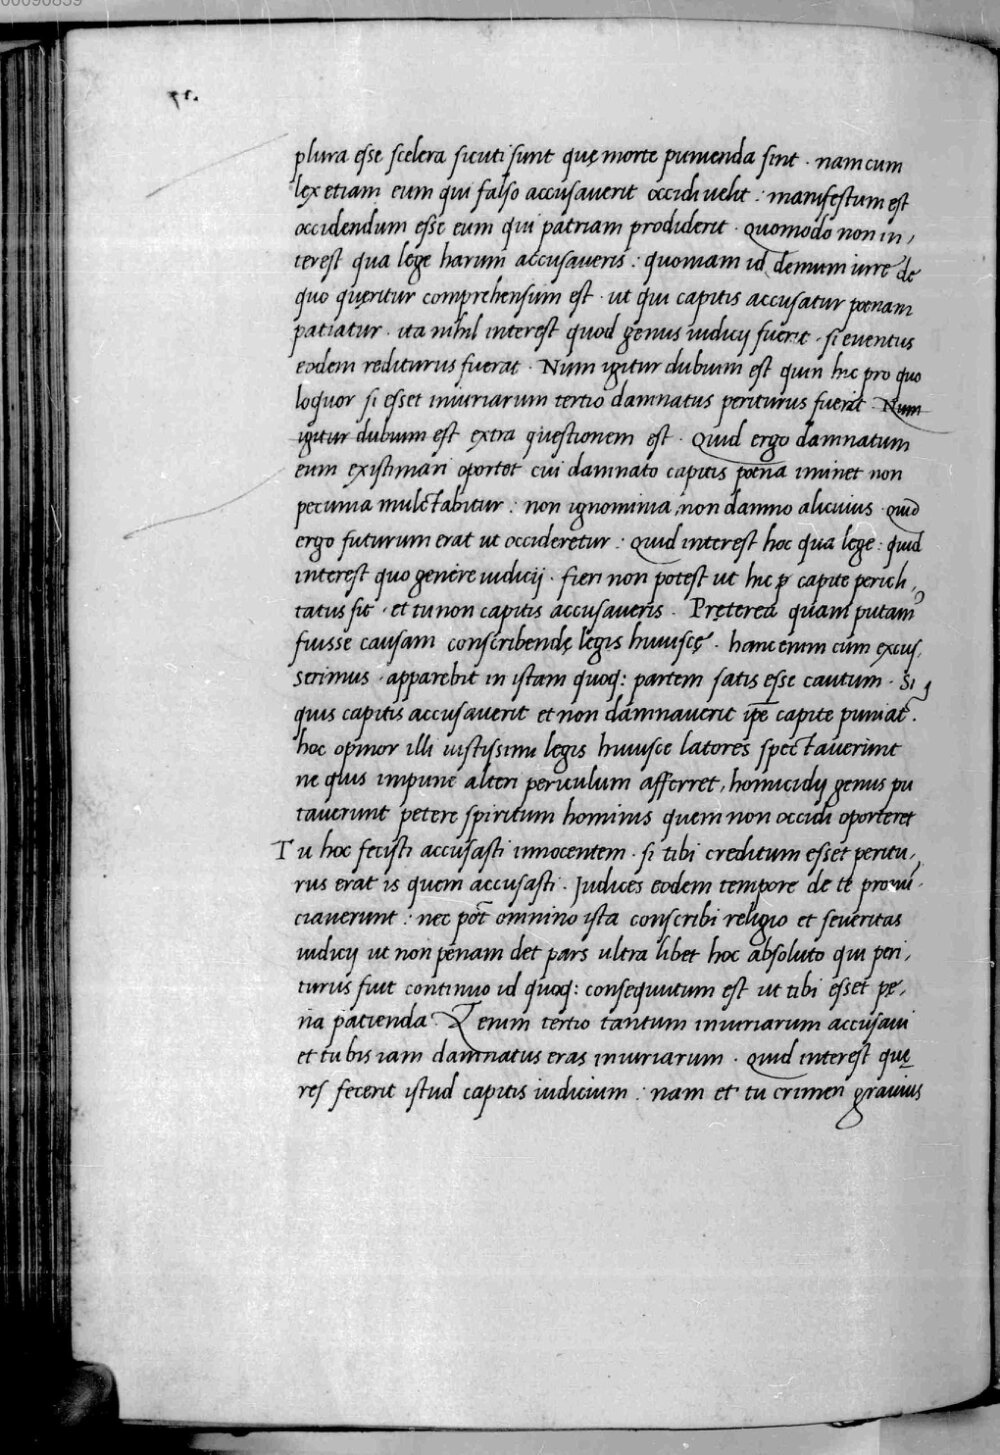 plura esse scelera sicuti sunt quę morte punienda sint · nam cum
lex etiam eum qui falso accusaverit occidi uelit : manifestum est
occidendum esse eum qui patriam prodiderit · quomodo non in,
terest qua lege harum accusaveris : quoniam id demum iurre de
quo quęritur comprehensum est · ut qui capitis accusatur poenam
patiatur · ita nihil interest quod genus iudicij fuerit · si eventus
eodem rediturus fuerat · Num igitur dubium est quin hic pro quo
loquor si esset iniuriarum tertio damnatus periturus fuerit · Num
igitur dubium est extra questionem est · Quid ergo damnatum
eum existimari oportet cui damnato capitis poena iminet non
pecunia mulctabitur : non ignominia, non damno alicuius · quid
ergo futurum erat ut occideretur : Quid interest hoc qua lege : quid
interest quo genere iudicij · fieri non potest ut hic p capite pericli,
tatus sit · et tu non capitis accusaveris · Pręterea quam putam
fuisse causam conscribendę legis huiuscę · hanc enim cum excus,
serimus · apparebit in istam quoq: partem satis esse cautum · Si
quis capitis accusaverit et non damnaverit ip̄e capite puniat.
hoc opinor illi iustissimi legis huiusce latores spectaverunt
ne quis impune alteri periculum afferret, homicidij genus pu
taverunt petere spiritum hominis quem non occidi oporteret
Tu hoc fecisti accusasti innocentem · si tibi creditum esset peritu,
rus erat is quem accusasti · Judices eodem tempore de te pronū,
ciaverunt : nec pōt omnino ista conscribi religio et severitas
iudicij ut non penam det pars ultra libet hoc absoluto qui peri,
turus fuit continuo id quoq: consequutum est ut tibi esset pę,
na patienda · enim tertio tantum iniuriarum accusavi
et tu bis iam damnatus eras iniuriarum · Quid interest quę
res fecerit istud capitis iudicium : nam et tu crimen gravius